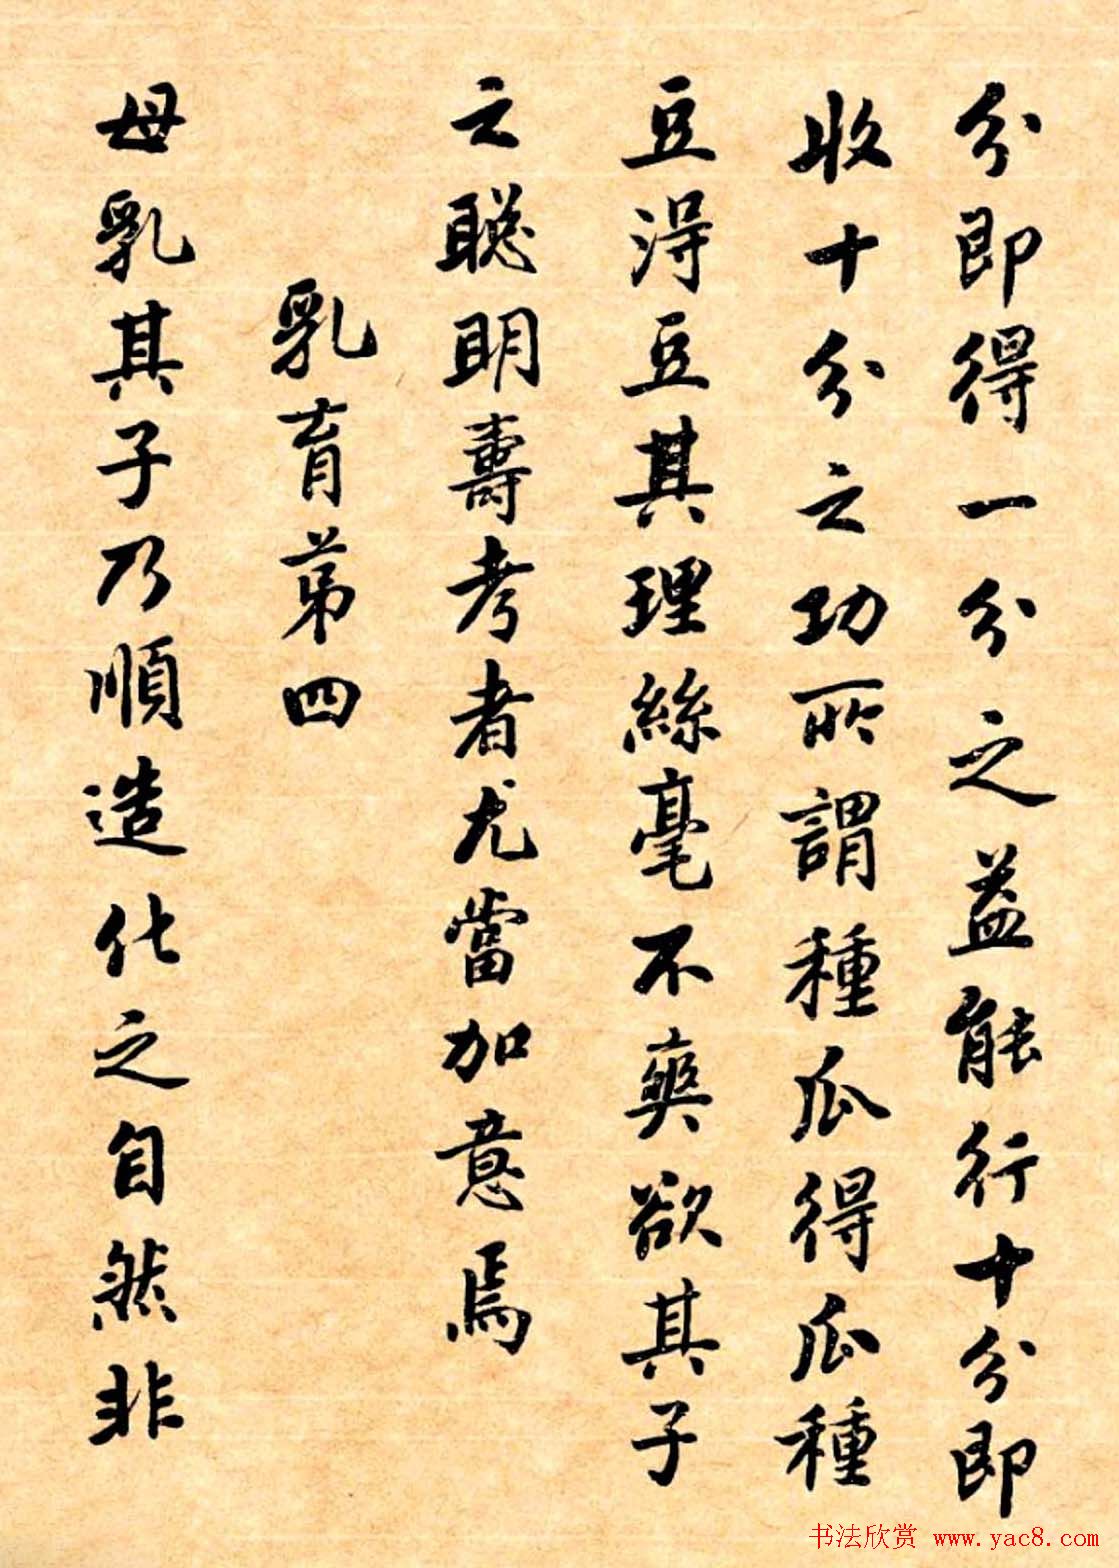 分即得一分之益能行十分即
收十分之功所謂種瓜得瓜種
豆淂豆其理絲毫不爽欲其子
之聪明壽考者尤當加意焉
乳育苐四
母乳其子乃順造化之自然非
书法欣赏 www.yac8.com